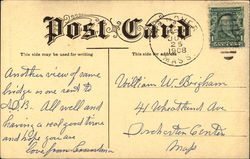 Post Card
This side may be used for writing
This side is for the address
25
1908
MASS.
Another view of same
bridge as one sent to
All well and
having a real good time
and hope you are
love from
William W. Brigham
41 Wheatland Ave
Dorchester Center
Mass